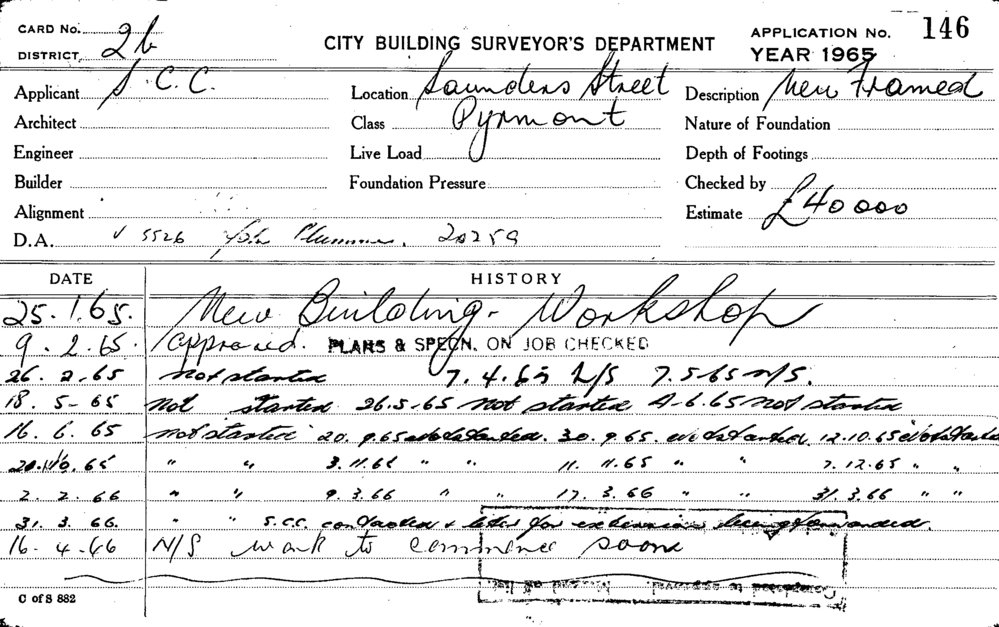 CARD No.
DISTRICT 2b
CITY BUILDING SURVEYOR'S DEPARTMENT
APPLICATION No. 146
YEAR 1965
Applicant S.C.C.
Location Saunders Street
Description New Framed
Architect
Class Pyrmont
Nature of Foundation
Engineer
Live Load
Depth of Footings
Builder
Foundation Pressure
Checked by
Alignment
Estimate £40000
D.A. √ 5526 John Plummer. 20259
DATE HISTORY
25.1.65. New Building - Workshop
9.2.65. Approved. PLANS & SPECN. ON JOB CHECKED
26.2.65 Not started 7.4.65 N/S 7.5.65 N/S.
18.5-65 Not started 26.5.65 Not started 4-6.65 Not started
16.6.65 Not started 20.9.65 Not started. 30.9.65. Not started. 12.10.65 Not started
20.10.65 " " 3.11.65 " " 11.11.65 " " 7.12.65 " "
2.2.66 " " 9.3.66 " " 17.3.66 " " 31.3.66 " "
31.3.66. " " S.C.C. contacted & letter for extension being forwarded.
16.4.66 N/S work to commence soon
C of S 882